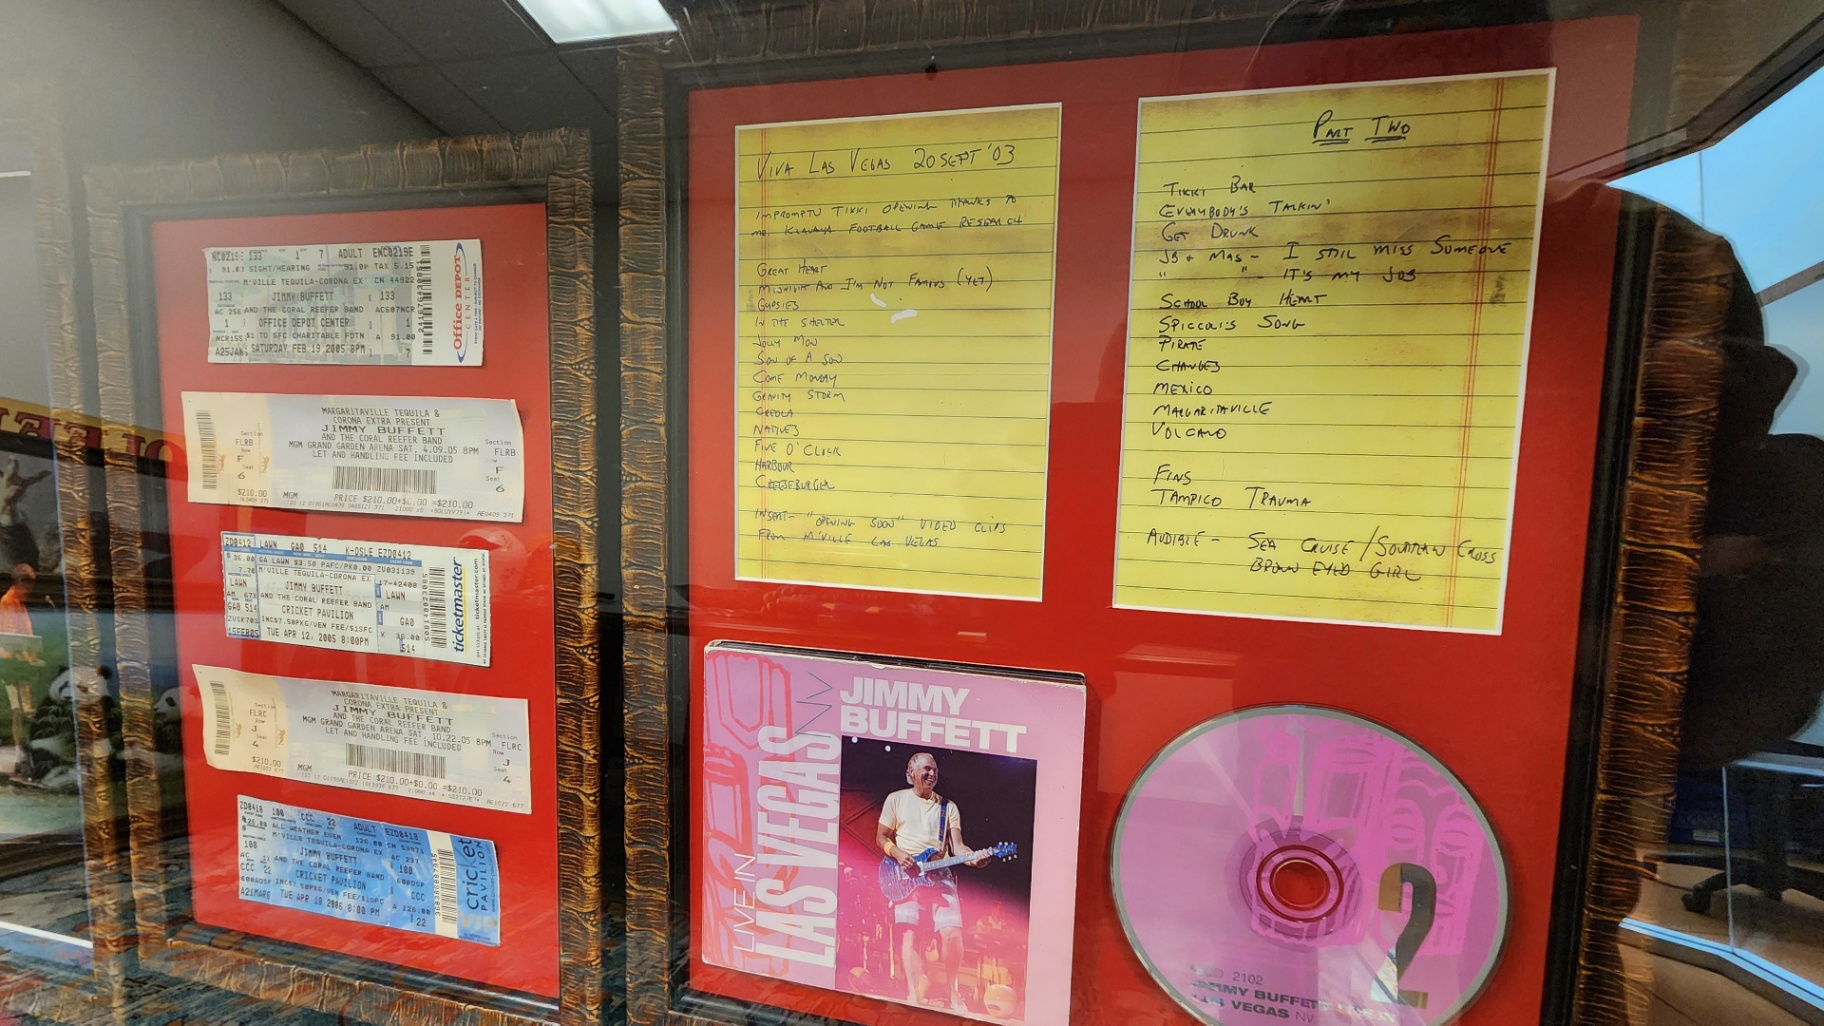 133 1 7 ADULT ENC0219E
91.03 SIGHT/HEARING TAX 5.15
M'VILLE TEQUILA-CORONA EX CN 44922
133 JIMMY BUFFETT 133
AC 256 AND THE CORAL REEFER BAND AC607NCR
1 OFFICE DEPOT CENTER 1
$1 TO SFC CHARITABLE FDTN A 91.00
A25JAN SATURDAY FEB 19 2005 8PM 7
Office DEPOT
CENTER
MARGARITAVILLE TEQUILA &
CORONA EXTRA PRESENT
JIMMY BUFFETT
AND THE CORAL REEFER BAND
MGM GRAND GARDEN ARENA SAT, 4.09.05 8PM
LET AND HANDLING FEE INCLUDED
Section
FLRB
Row
F
Seat
6
$210.00
MGM PRICE $210.00+$0.00 =$210.00
Section
FLRB
F
Seat
6
ZD0412 LAWN GA0 514 K-OSLE EZD0412
GA LAWN $3.50 PAFC/PK0.00 ZV031139
M'VILLE TEQUILA-CORONA EX
LAWN JIMMY BUFFETT LAWN
AND THE CORAL REEFER BAND
GA0 514 CRICKET PAVILION GA0
INC$7.50PKG/VEN FEE/$1SFC K 36.00
15FEB05 TUE APR 12, 2005 8:00PM 514
ticketmaster
MARGARITAVILLE TEQUILA &
CORONA EXTRA PRESENT
JIMMY BUFFETT
AND THE CORAL REEFER BAND
MGM GRAND GARDEN ARENA SAT, 10.22.05 8PM
LET AND HANDLING FEE INCLUDED
Section
FLRC
J
Seat
4
$210.00
MGM PRICE $210.00+$0.00 =$210.00
Section
FLRC
Row
J
Seat
4
ZD0418 100 CCC 22 ADULT EZD0418
ALL WEATHER 126.00 CN 53971
M'VILLE TEQUILA-CORONA EX AC 237
100 JIMMY BUFFETT 100
AND THE CORAL REEFER BAND
CCC 22 CRICKET PAVILION CCC
TUE APR 18 2006 8:00 PM 22
cricket
PAVILION
VIVA LAS VEGAS 20 SEPT '03
IMPROMPTU TIKKI OPENING THANKS TO
MR. FOOTBALL GAME RESEARCH
GREAT HEART
MIDNIGHT AND I'M NOT FAMOUS (YET)
GYPSIES
IN THE SHELTER
JOLLY MON
SON OF A SON
COME MONDAY
GRAVITY STORM
CREOLA
NATIVES
FIVE O'CLOCK
HARBOUR
CHEESEBURGER
INSERT - "OPENING SOON" VIDEO CLIPS
FROM M'VILLE LAS VEGAS
PART TWO
TIKKI BAR
EVERYBODY'S TALKIN'
GET DRUNK
JB + MAC - I STILL MISS SOMEONE
" " - IT'S MY JOB
SCHOOL BOY HEART
SPICCOLI'S SONG
PIRATE
CHANGES
MEXICO
MARGARITAVILLE
VOLCANO
FINS
TAMPICO TRAUMA
AUDIBLE - SEA CRUISE / SOUTHERN CROSS
BROWN EYED GIRL
JIMMY
BUFFETT
LIVE IN
LAS VEGAS NV
2
2102
JIMMY BUFFETT
LAS VEGAS NV